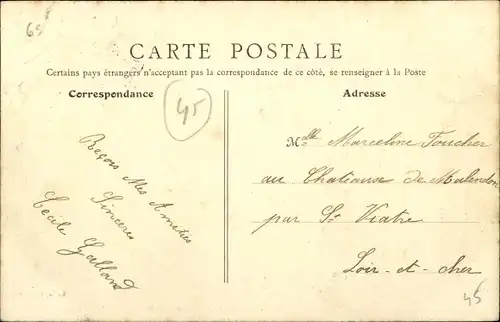 65
CARTE POSTALE
Certains pays étrangers n'acceptant pas la correspondance de ce côté, se renseigner à la Poste
Correspondance
45
Reçois Mes Amitiés
Sincères
Cécile Galland
Adresse
Mlle Marceline Foucher
au Chateaux de
par St Viatre
Loir-et-cher
45